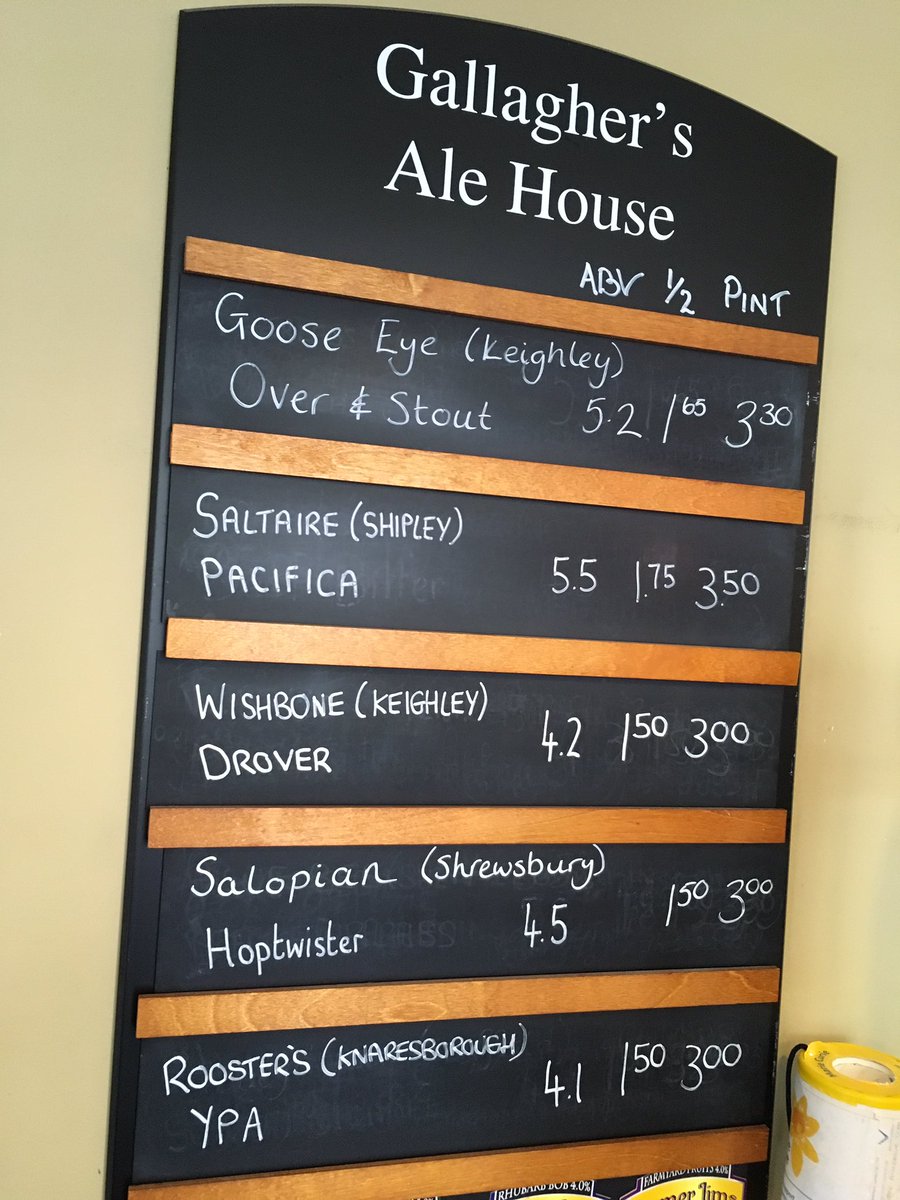 Gallagher's
Ale House
ABV 1/2 PINT
Goose Eye (Keighley)
Over & Stout 5.2 1.65 3.30
SALTAIRE (SHIPLEY)
PACIFICA 5.5 1.75 3.50
WISHBONE (KEIGHLEY)
DROVER 4.2 1.50 3.00
Salopian (Shrewsbury)
Hoptwister 4.5 1.50 3.00
ROOSTER'S (KNARESBOROUGH)
YPA 4.1 1.50 3.00
RHUBARB BOB 4.0% FARMYARD FRUITS 4.0%
Jims
Marie Curie